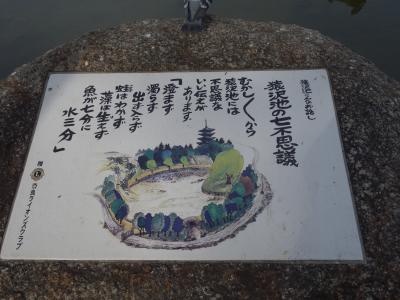 猿沢池こなお話し
猿沢池の七不思議
むかし〱から
猿沢池には
不思議な
いい伝えが
あります。
「澄ます
濁らず
出ず入らず
蛙はわかず
藻は生えず
魚が七分に
水三分」
贈 L 奈良ライオンズクラブ